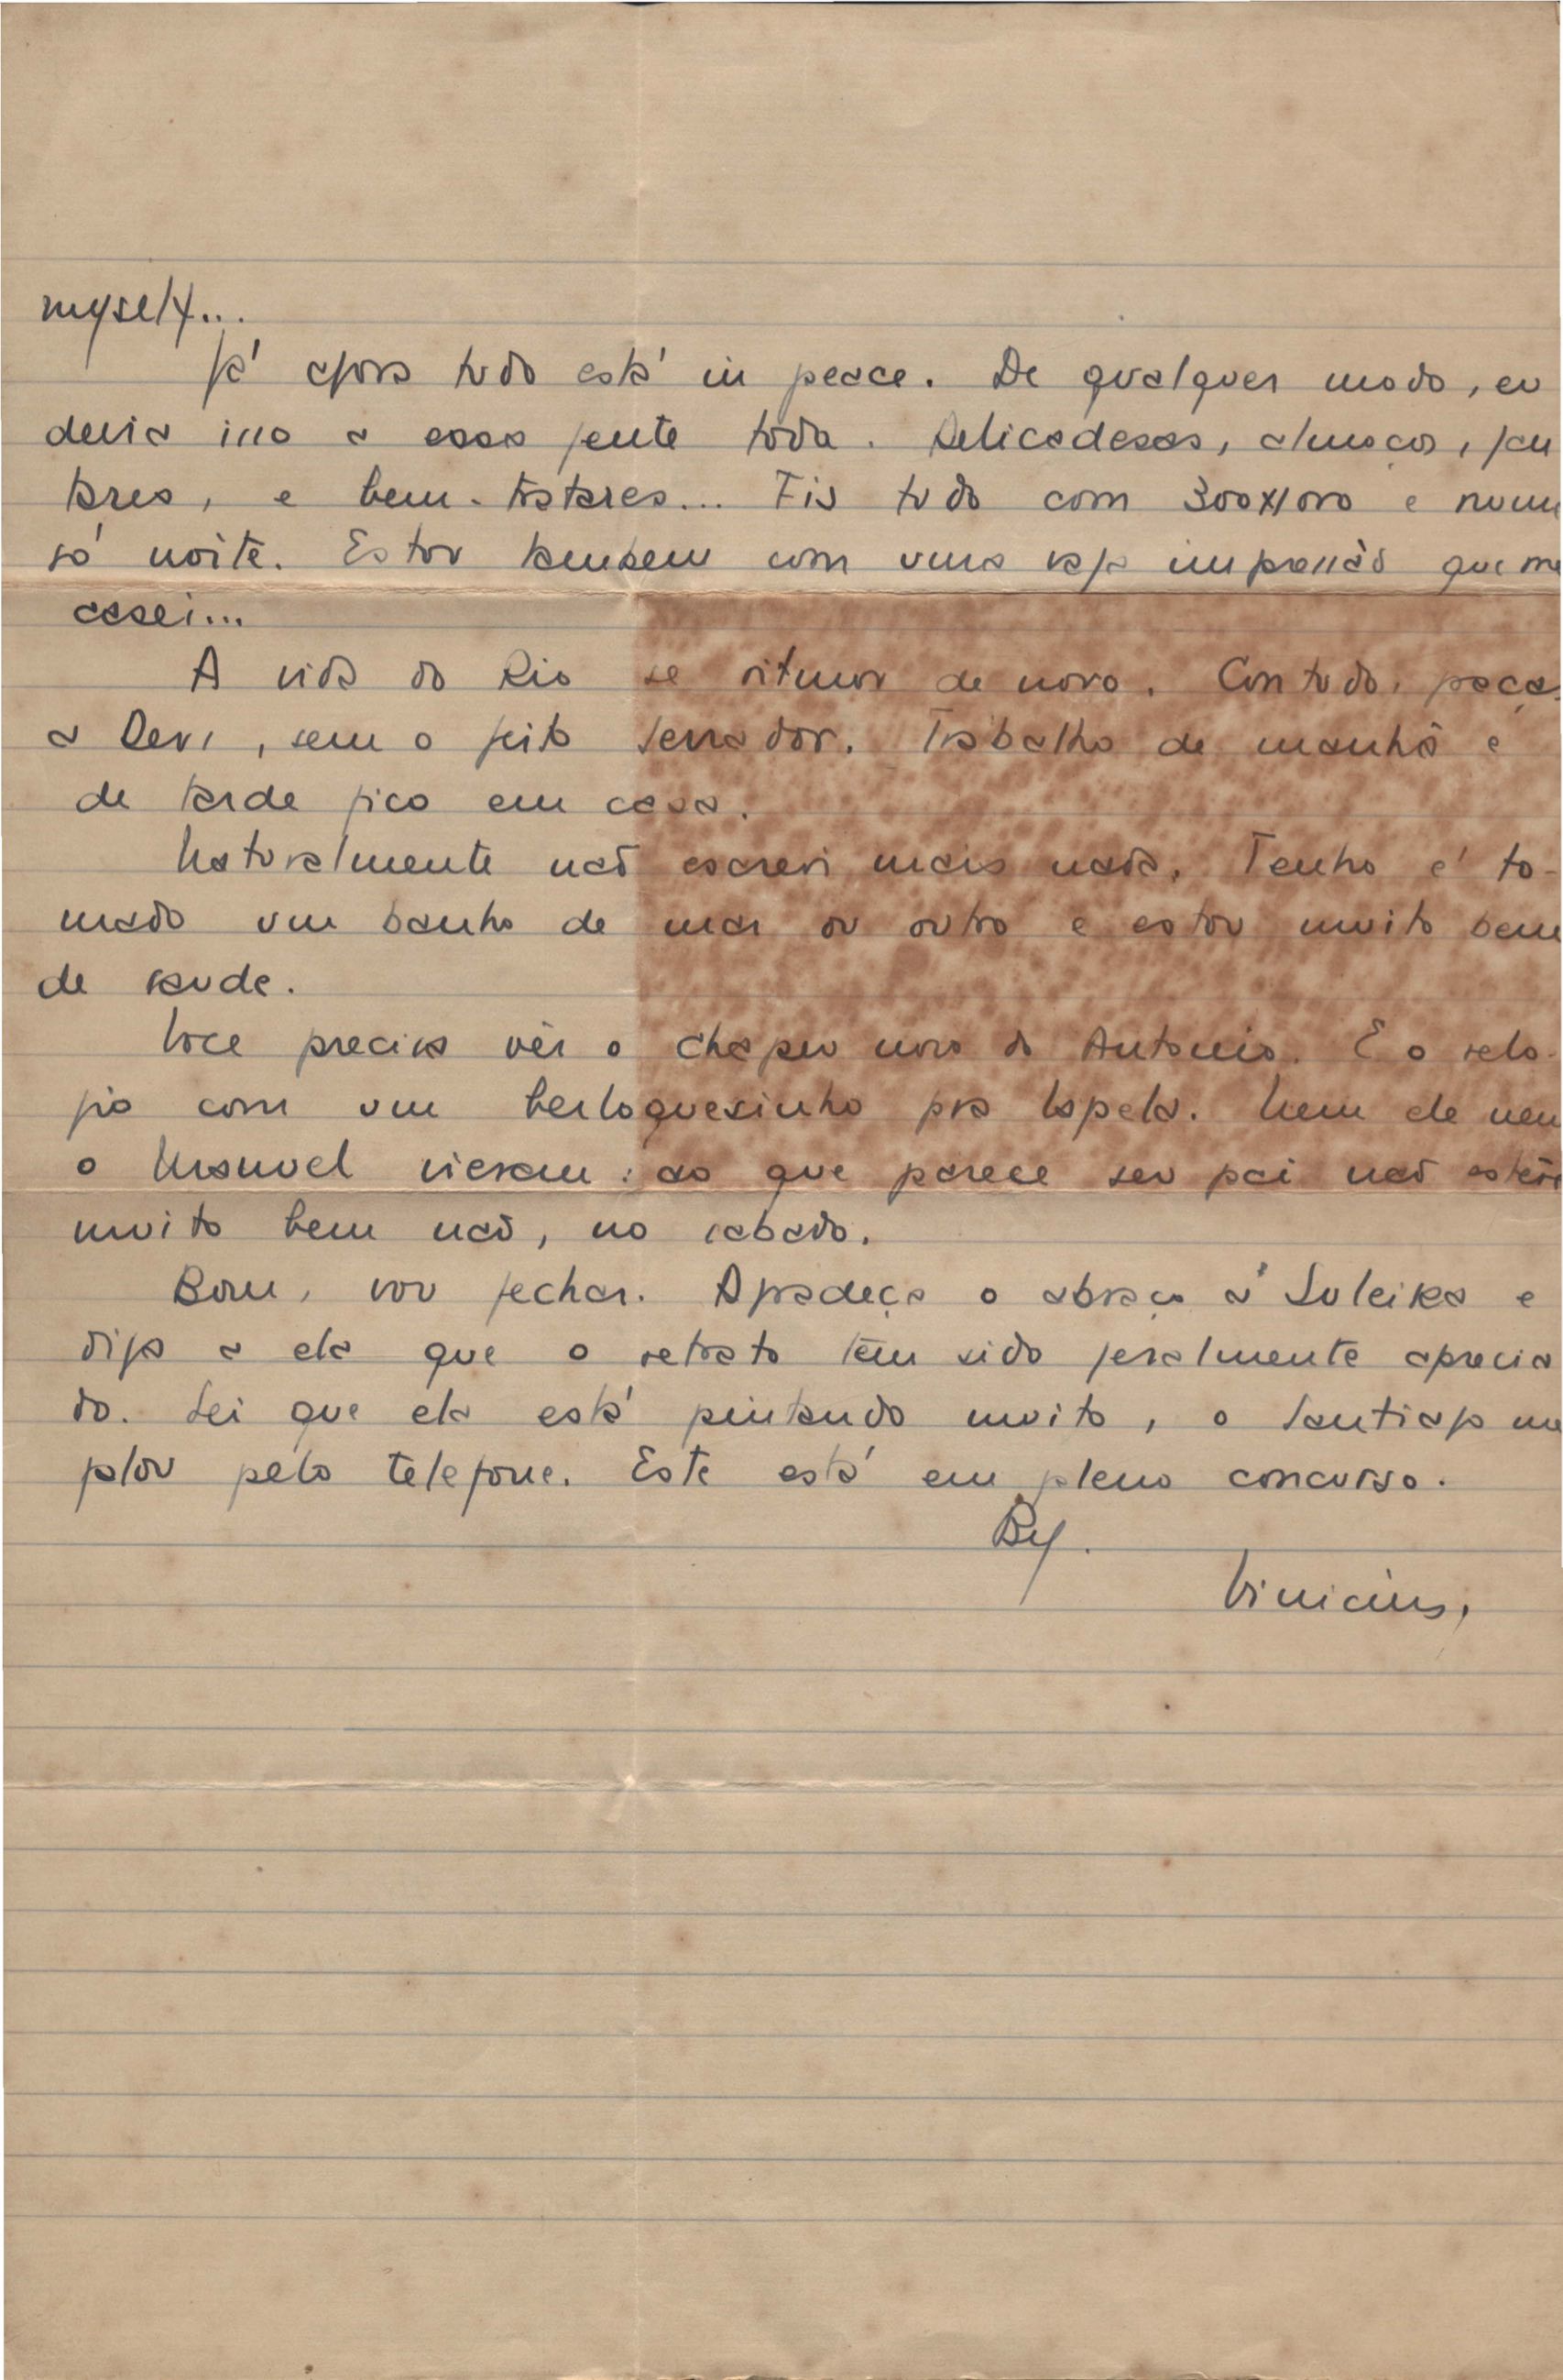 myself...
Já agora tudo está in peace. De qualquer modo, eu
devia isso a essa gente toda. Delicadesas, almoços, jan
tares, e bem-tratares... Fiz tudo com 300$000 e numa
só noite. Estou tambem com uma vaga impressão que me
casei...
A vida do Rio se ritmou de novo. Contudo, graças
a Deus, sem o jeito serrador. Trabalho de manhã e
de tarde fico em casa.
Naturalmente não escrevi mais nada. Tenho é to-
mado um banho de mar ou outro e estou muito bem
de saude.
Voce precisa vêr o chapeu novo do Antonio. E o relo-
gio com um berloquesinho pra lapela. Nem ele nem
o Manuel vieram: ao que parece seu pai não esteve
muito bem não, no sabado.
Bom, vou fechar. Agradeça o abraço á Suleika e
diga a ela que o retrato tem sido geralmente aprecia
do. Sei que ela está pintando muito, o Santiago me
falou pelo telefone. Este está em pleno concurso.
By.
Vinicius.